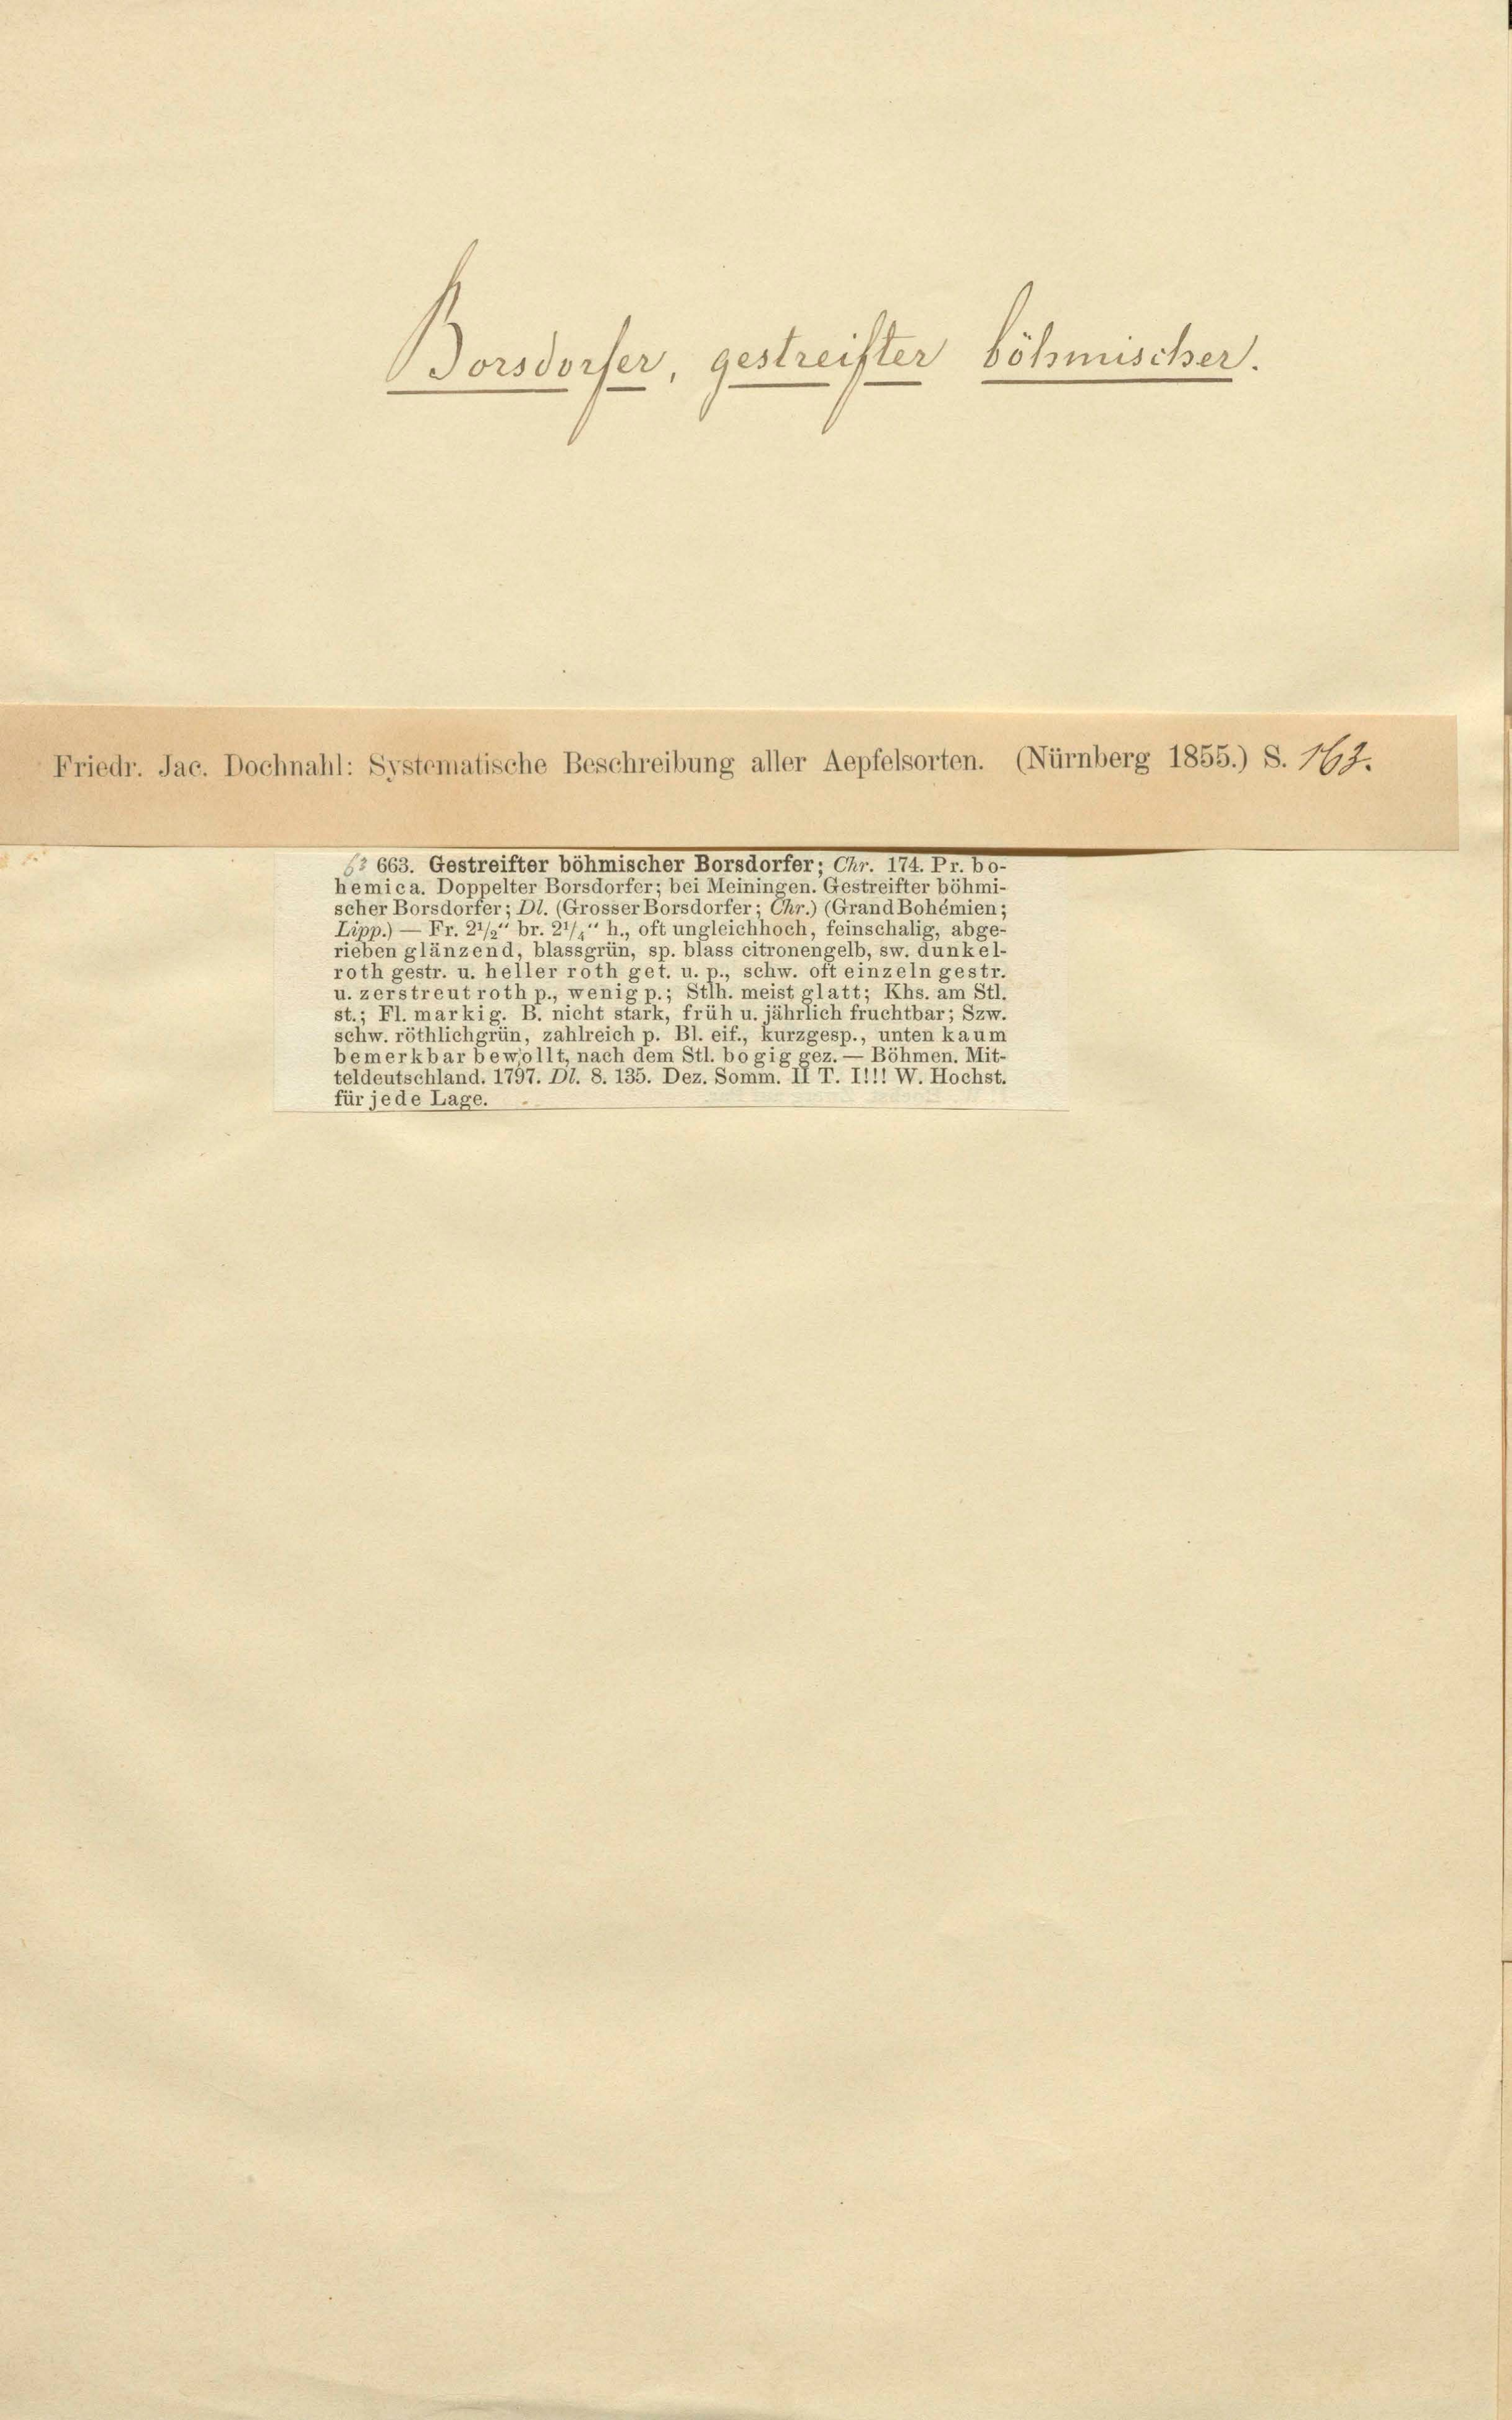 Borsdorfer, gestreifter böhmischer.
Friedr. Jac. Dochnahl: Systematische Beschreibung aller Aepfelsorten. (Nürnberg 1855.) S. 163.
663. Gestreifter böhmischer Borsdorfer; Chr. 174. Pr. bo-
hemica. Doppelter Borsdorfer; bei Meiningen. Gestreifter böhmi-
scher Borsdorfer; Dl. (Grosser Borsdorfer; Chr.) (Grand Bohémien;
Lipp.) — Fr. 2½“ br. 2¼“ h., oft ungleichhoch, feinschalig, abge-
rieben glänzend, blassgrün, sp. blass citronengelb, sw. dunkel-
roth gestr. u. heller roth get. u. p., schw. oft einzeln gestr.
u. zerstreut roth p., wenig p.; Stlh. meist glatt; Khs. am Stl.
st.; Fl. markig. B. nicht stark, früh u. jährlich fruchtbar; Szw.
schw. röthlichgrün, zahlreich p. Bl. eif., kurzgesp., unten kaum
bemerkbar bewollt, nach dem Stl. bogig gez. — Böhmen. Mit-
teldeutschland. 1797. Dl. 8. 135. Dez. Somm. II T. I!!! W. Hochst.
für jede Lage.